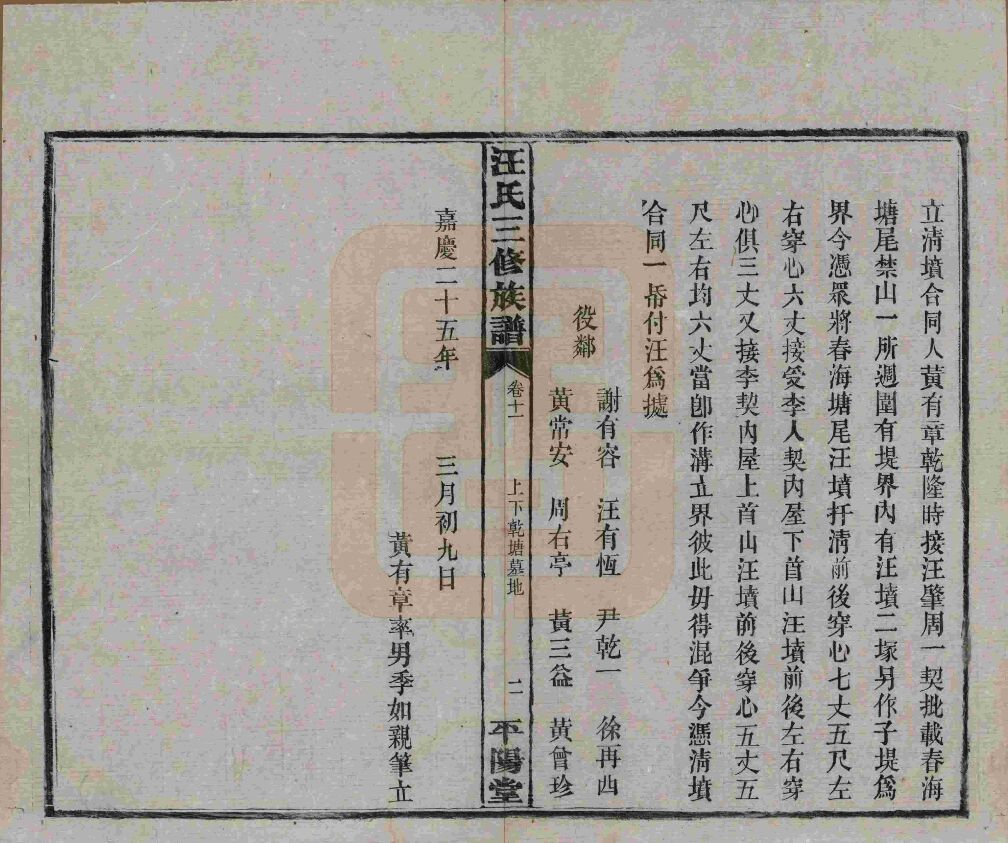 立淸墳合同人黃有章乾隆時接汪肇周一契批載春海
塘尾禁山一所週圍有堤界內有汪墳二塚另作子堤爲
界今憑眾將春海塘尾汪墳扦淸前後穿心七丈五尺左
右穿心六丈接受李人契內屋下首山汪墳前後左右穿
心俱三丈又接李契內屋上首山汪墳前後穿心五丈五
尺左右均六丈當卽作溝立界彼此毋得混爭今憑淸墳
合同一帋付汪爲據
謝有容 汪有恆 尹乾一 徐再西
役鄰
黃常安 周右亭 黃三益 黃曾珍
汪氏三修族譜 卷十一 上下乾塘墓地 二 平陽堂
嘉慶二十五年 三月初九日
黃有章率男季如親筆立